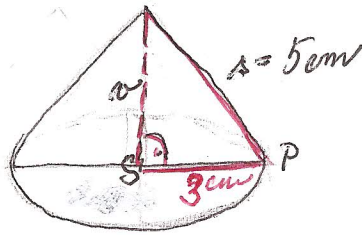 s = 5cm
v
S
P
3cm